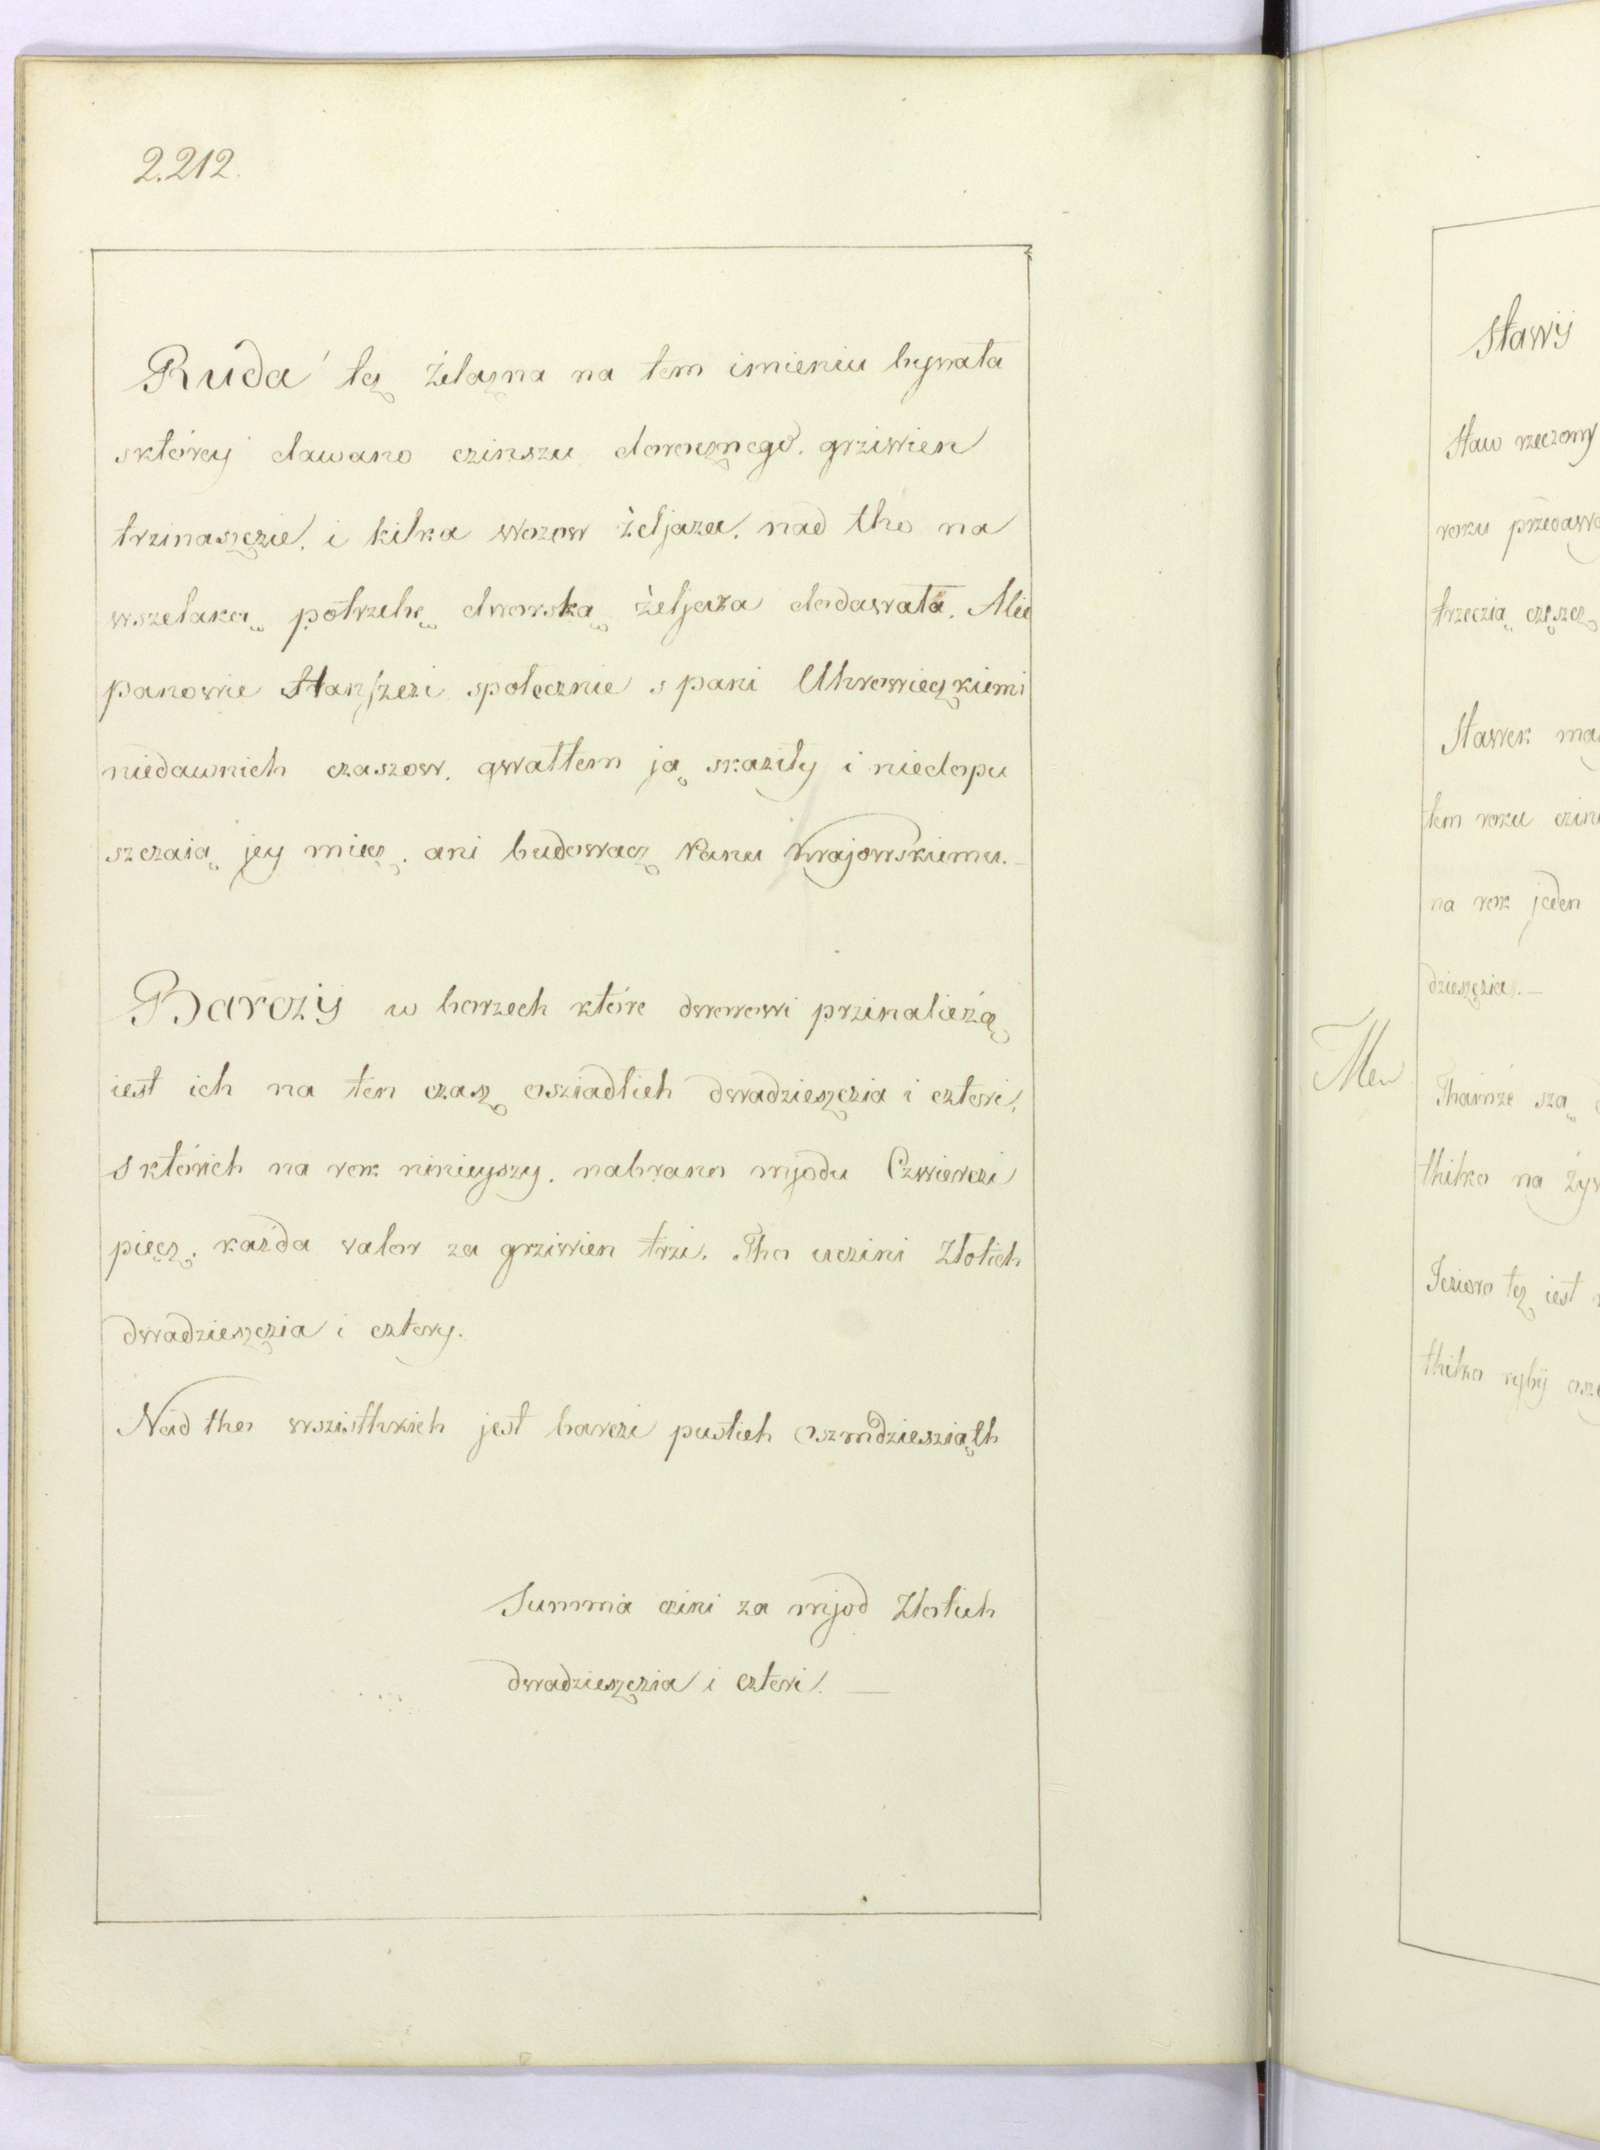 2.212.
Ruda też żelazna na tem imieniu bywała
sktórey dawano czinszu dorocznego. grziwien
trzinasczie. i kilka wozow żeljaza. nad tho na
wszelaką potrzebę dworską żeljaza dodawała. Ale
panowie społecznie s pani Uhrowieczkiemi
niedawnich czaszow. gwałtem ją skaziły i niedopu
szczaią jey miecz. ani budowacz Panu Krajowskiemu.
Barczÿ w borzech które dworowi przinalieżą
iest ich na ten czasz osziadlich dwadziesczia i czteri.
s których na rok ninieyszy. nabrano mjodu Czwierczi
pięcz. każda valor za grziwien trzi. Tho uczini Złotich
dwadziesczia i cztery.
Nad tho wszisthkich jest barczi pustich oszmdziesziąth
Summa czini za mjod Złotich
dwadziesczia i czteri. —
Stawÿ
Staw rzeczony
roku przedaw
trzeczią częscz
Stawek ma
tem roku czin
na rok jeden
dziesczia. —
Thamże szą
thilko na żyw
Iezioro też iest
thilko rybÿ